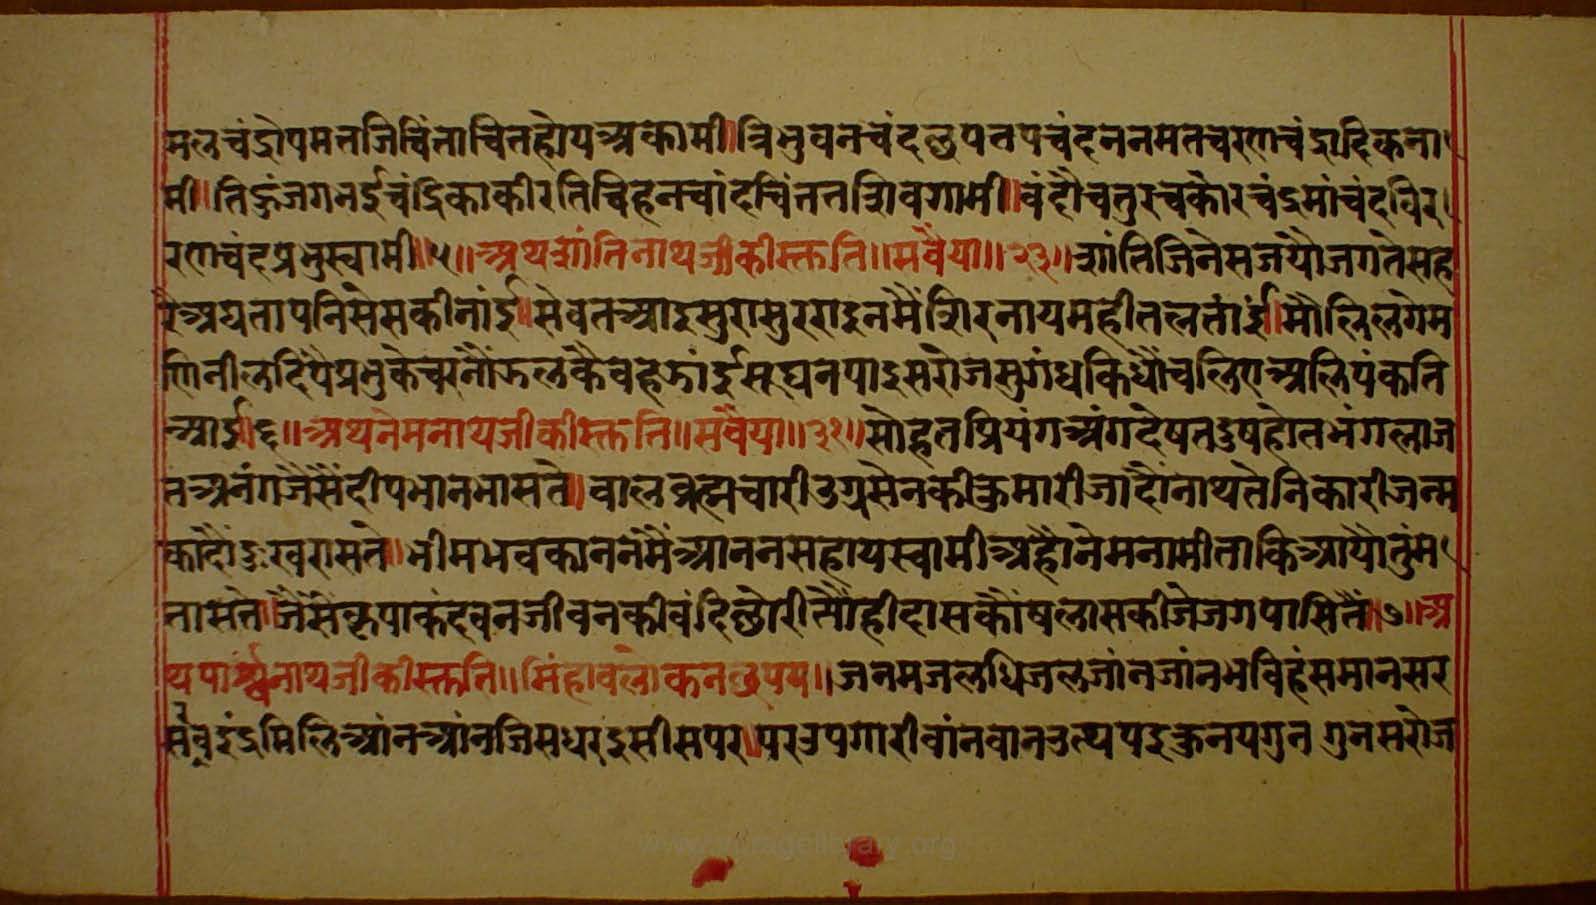 मलचंद्रोपमतजिचिंताचितहोयअकामी॥त्रिभुवनचंदछपनपचंदनननमतचरणचंद्रादिकना
मी॥तिहुंजगनभईचंद्रिकाकीरतिचिहनचांदचिंततशिवगामी॥वंदौचतुरचकोरचंद्रमांचंदविर
रणचंदप्रभुस्वामी॥५॥अथशांतिनाथजीकीस्तुति॥सवैया॥२३॥शांतिजिनेसजयौजगतेसह
रैअघतापनिसेसकीनांई॥सेवतआइसुरासुररराइनमैंशिरनायमहीतलतांई॥मौलिलगेम
णिनीलदिपैप्रभुकेचरनौंफलकैवहफांईसूघनपाइसरोजसुगंधकिधौंचलिएअलिपंकति
आई॥६॥अथनेमनाथजीकीस्तुति॥सवैया॥३१॥सोहतप्रियंगअंगदेषतदुषहोतभंगलाज
तअनंगजैसैंदीपभानभासतै॥बालब्रह्मचारीउग्रसेनकीकुमारीजादौंनाथतेनिकारीजन्म
कादौदुःखरासते॥भीमभवकाननमैंआननसहायस्वामीअहौनेमनामीताकिआयौतुंम
नासतै॥जैसैंकृपाकंदवनजीवनकीवंदिछोरीत्यौंहीदासकौंषलासकीजेजगपासितैं॥७॥अ
थपार्श्वनाथजीकीस्तुति॥सिंहावलोकनछप्पय॥जनमजलधिजलजांनजांनभविहंसमानसर
सर्वइंद्रमिलिआंनआंनजिसधरइसीसपर॥परउपगारीवांनवानउत्थपइकुनयगुनगुनसरोज